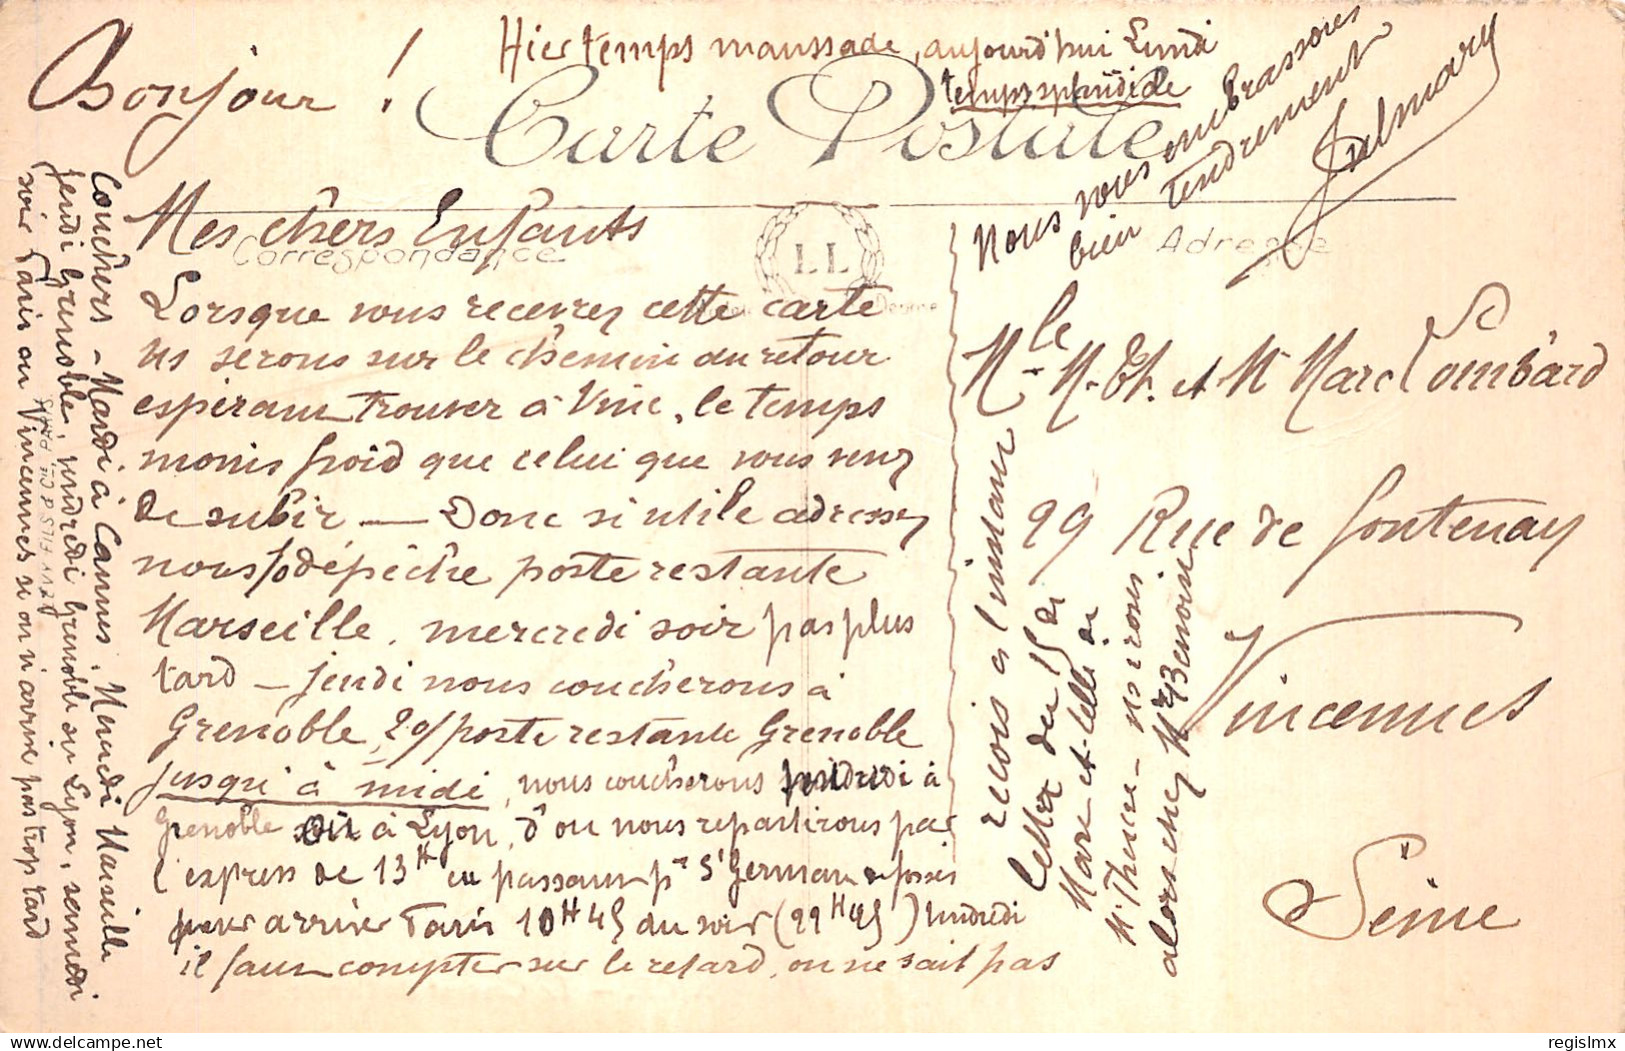 Bonjour !
Hier temps maussade, aujourd'hui Lundi
temps splendide
Carte Postale
Nous vous embrassons
bien tendrement
Correspondance
LL
Adresse
Mes chers Enfants
Lorsque vous recevrez cette carte
ns serons sur le chemin du retour
espérant trouver à Vinc. le temps
moins froid que celui que vous venez
de subir — Donc si utile adressez
nous dépêche poste restante
Marseille, mercredi soir pas plus
tard — jeudi nous coucherons à
Grenoble, poste restante Grenoble
jusqu'à midi, nous coucherons vendredi à
Grenoble à Lyon, d'où nous repartirons par
l'express de 13H en passant pr St German
pour arriver Paris 10H45 du soir (22H45)
il faut compter sur le retard, on ne sait pas
Couchers - Mardi à Cannes, Mercredi Marseille
Jeudi Grenoble, vendredi Grenoble ou Lyon, samedi
soir Paris ou Vincennes si on n'arrive pas trop tard
Mlle M. Th. et Mr Marc Lombard
99 Rue de Fontenay
Vincennes
Seine
recois à l'instant
lettre du 15 de
Marc et celle de
M. Thérèse - ns irons
alors chez Mr Benoist